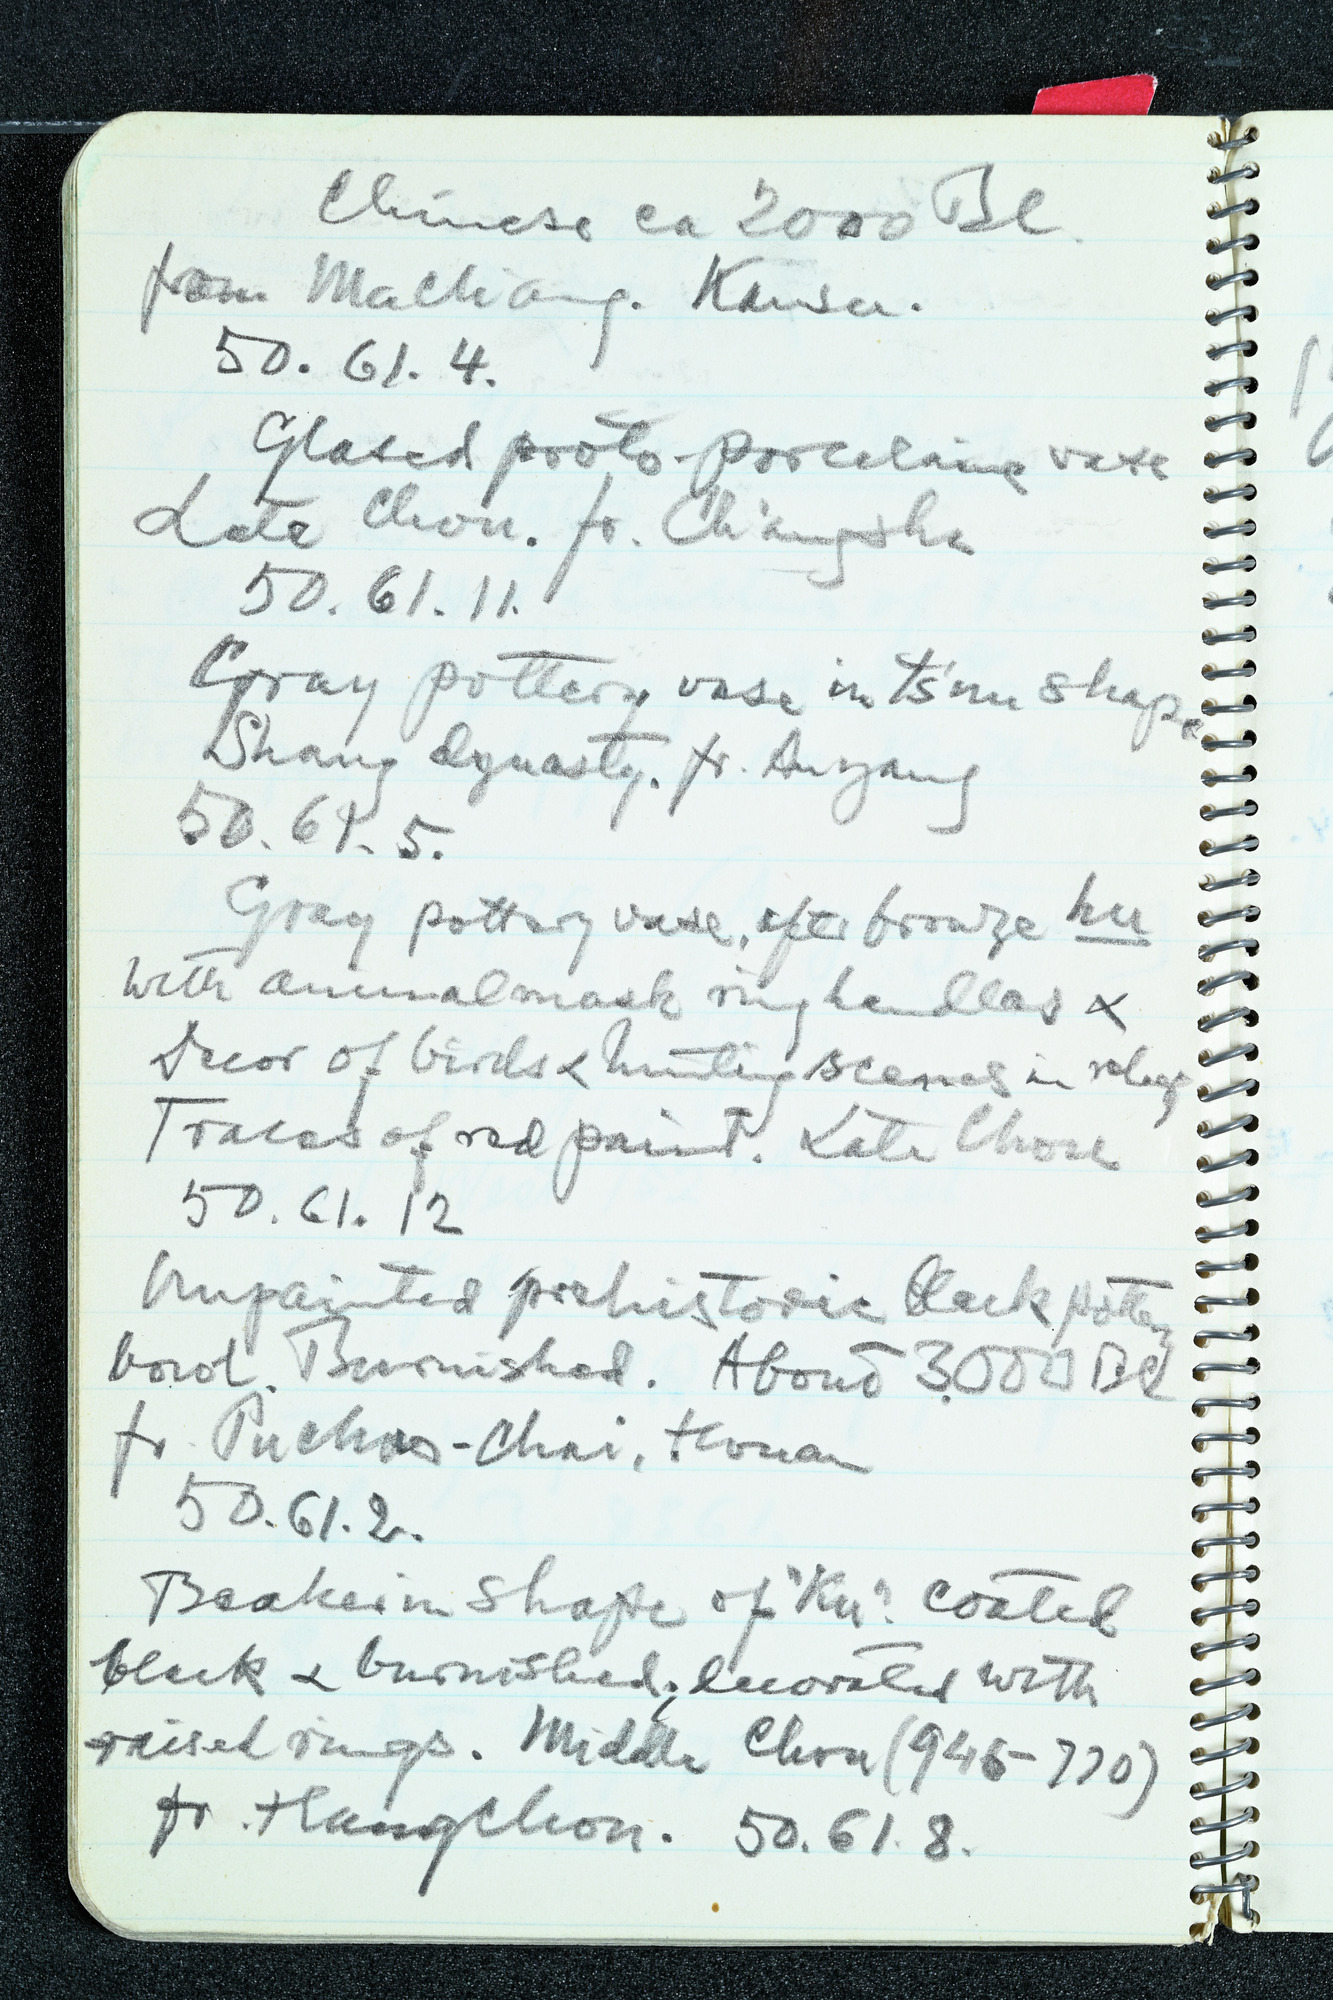 Chinese ca 2000 BC.
from Machiang. Kansu.
50. 61. 4.
Glased proto-porcelaine vase
Late Chou. fr. Ch'angsha
50. 61. 11.
Gray pottery vase in ts'un shape
Shang dynasty. fr. Anyang
50. 61. 5.
Gray pottery vase, after bronze hu
with animal mask ring handles &
Decor of birds & hunting scenes in relief
Traces of red paint. Late Chou
50. 61. 12
Unpainted prehistoric black pottery
bowl. Burnished. About 3000 BC
fr. Puchao-Chai, Honan
50.61.2.
Beaker in shape of "Ku". coated
black & burnished, decorated with
raised rings. Middle Chou (946-770)
fr. Hangchou. 50.61.8.